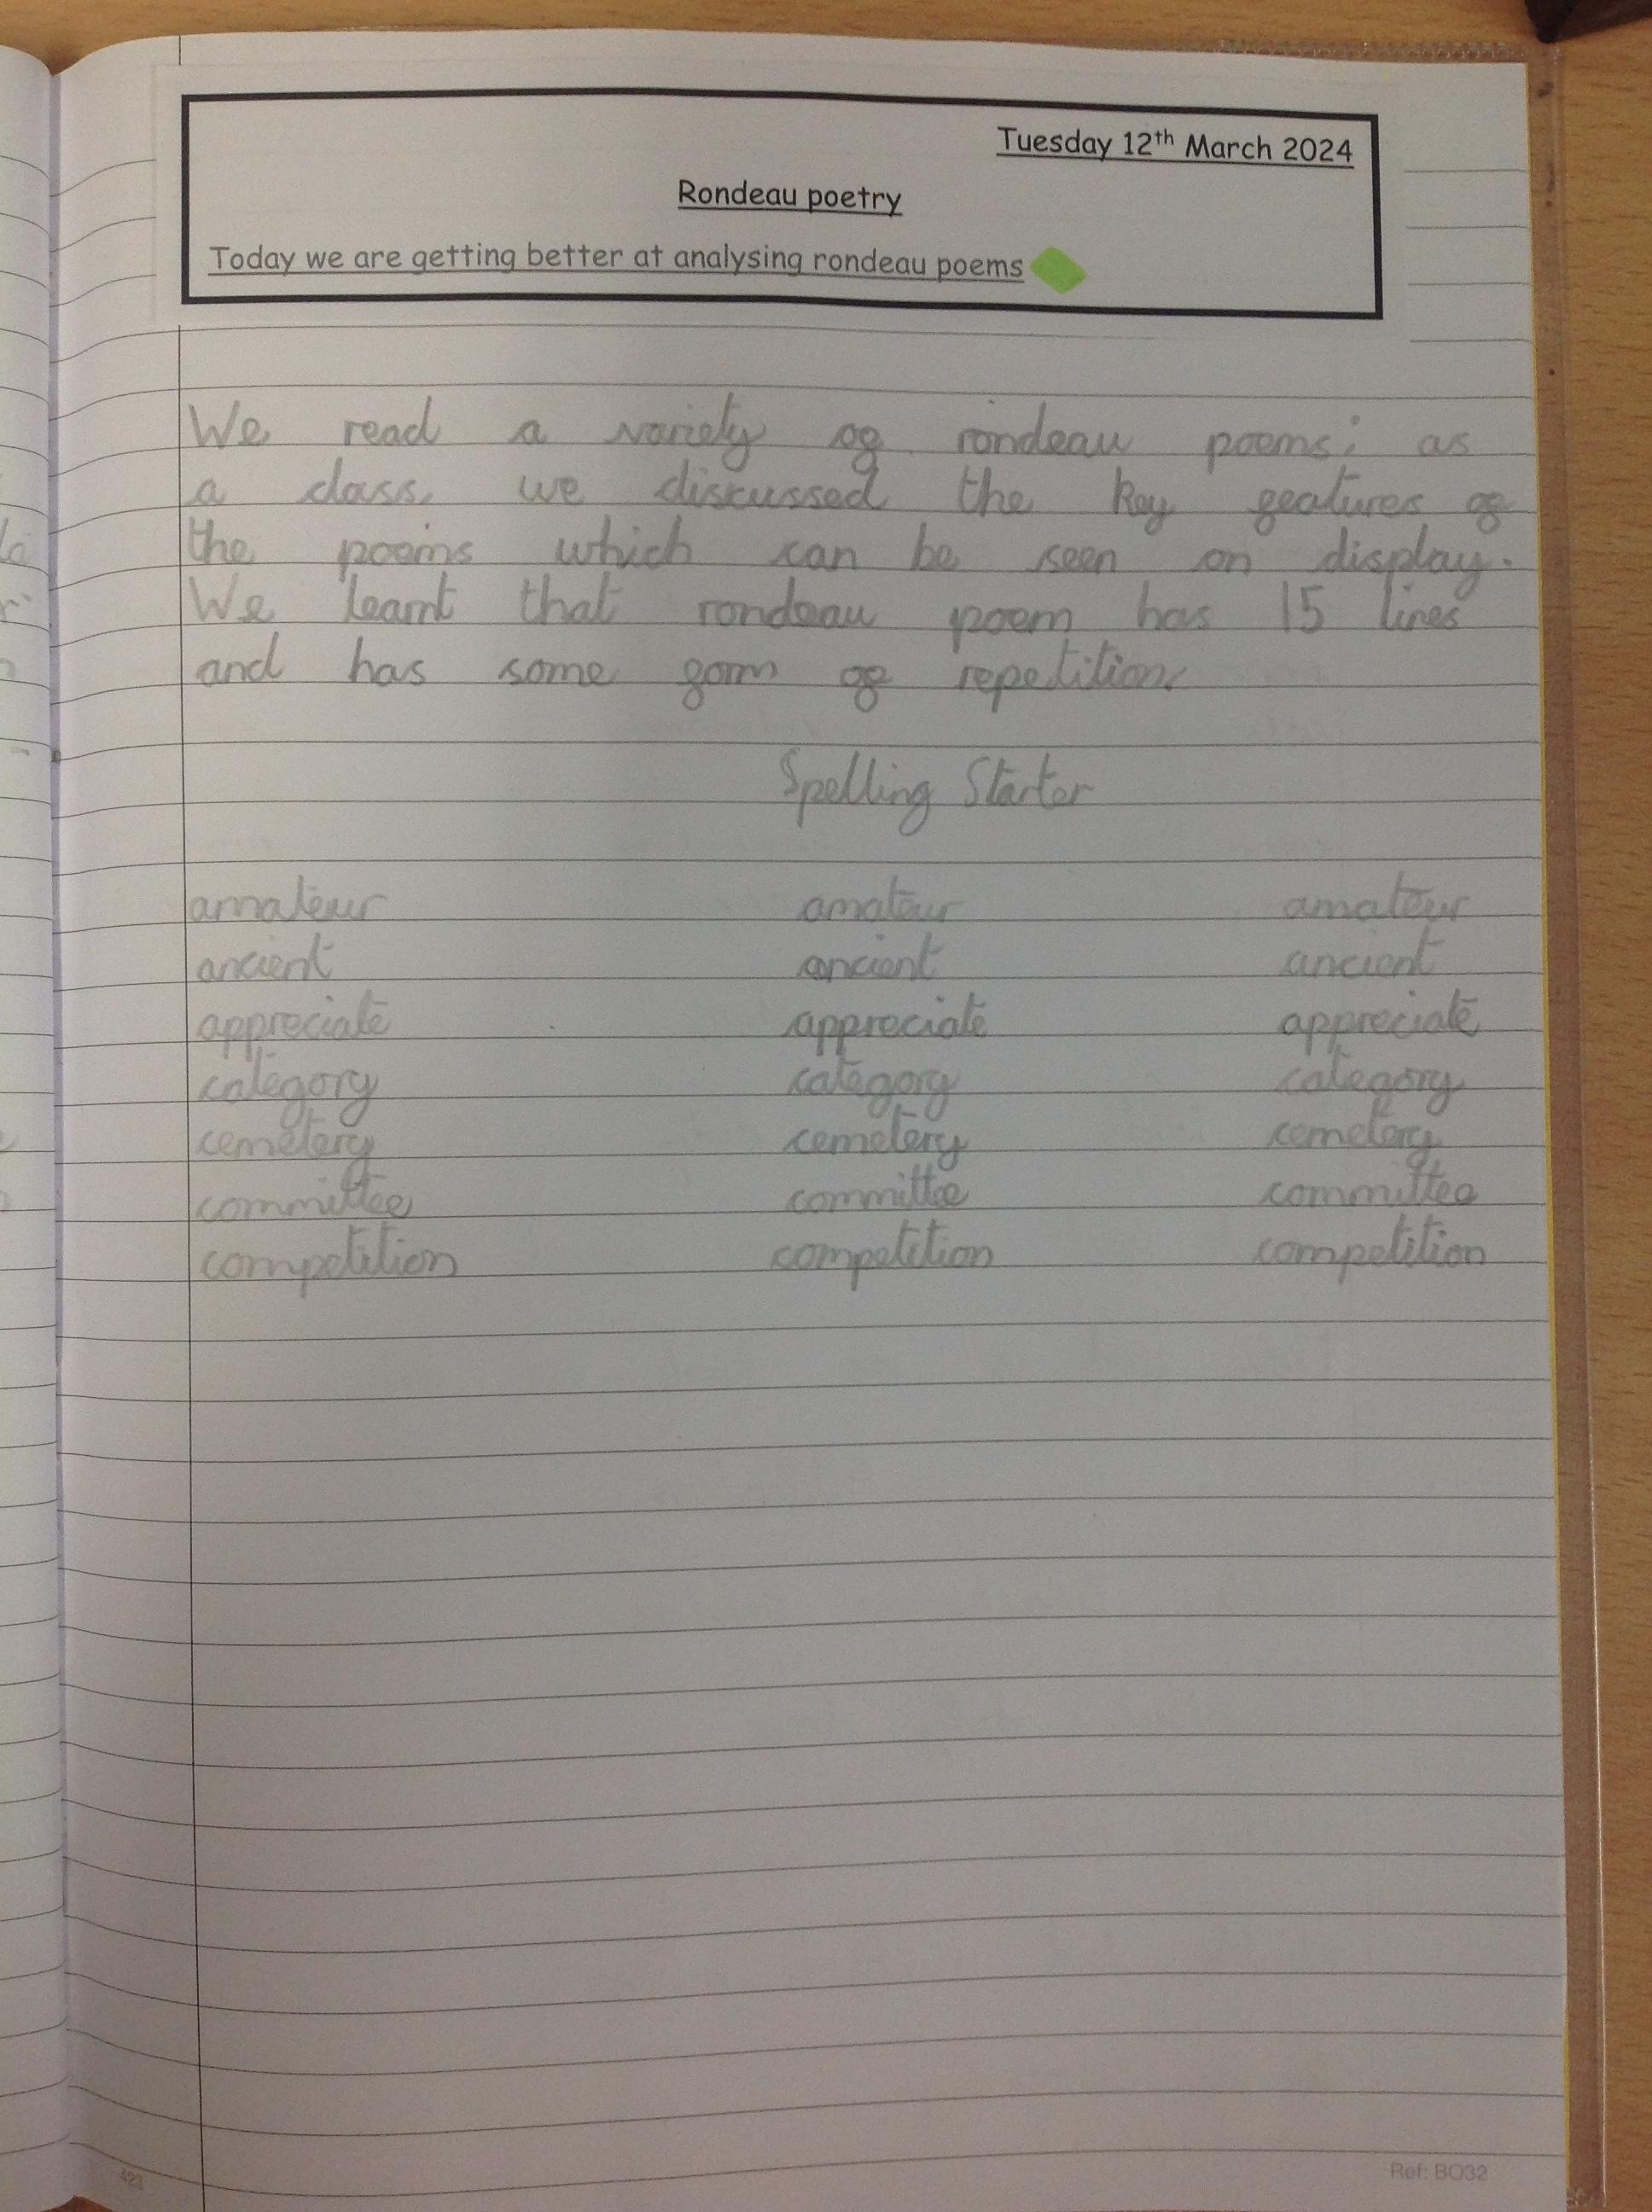 Tuesday 12th March 2024
Rondeau poetry
Today we are getting better at analysing rondeau poems
We read a variety of rondeau poems; as
a class, we discussed the key features of
the poems which can be seen on display.
We learnt that rondeau poem has 15 lines
and has some form of repetition.
Spelling Starter
amateur amateur amateur
ancient ancient ancient
appreciate appreciate appreciate
category category category
cemetery cemetery cemetery
committee committe committee
competition competition competition
423 Ref: BO32